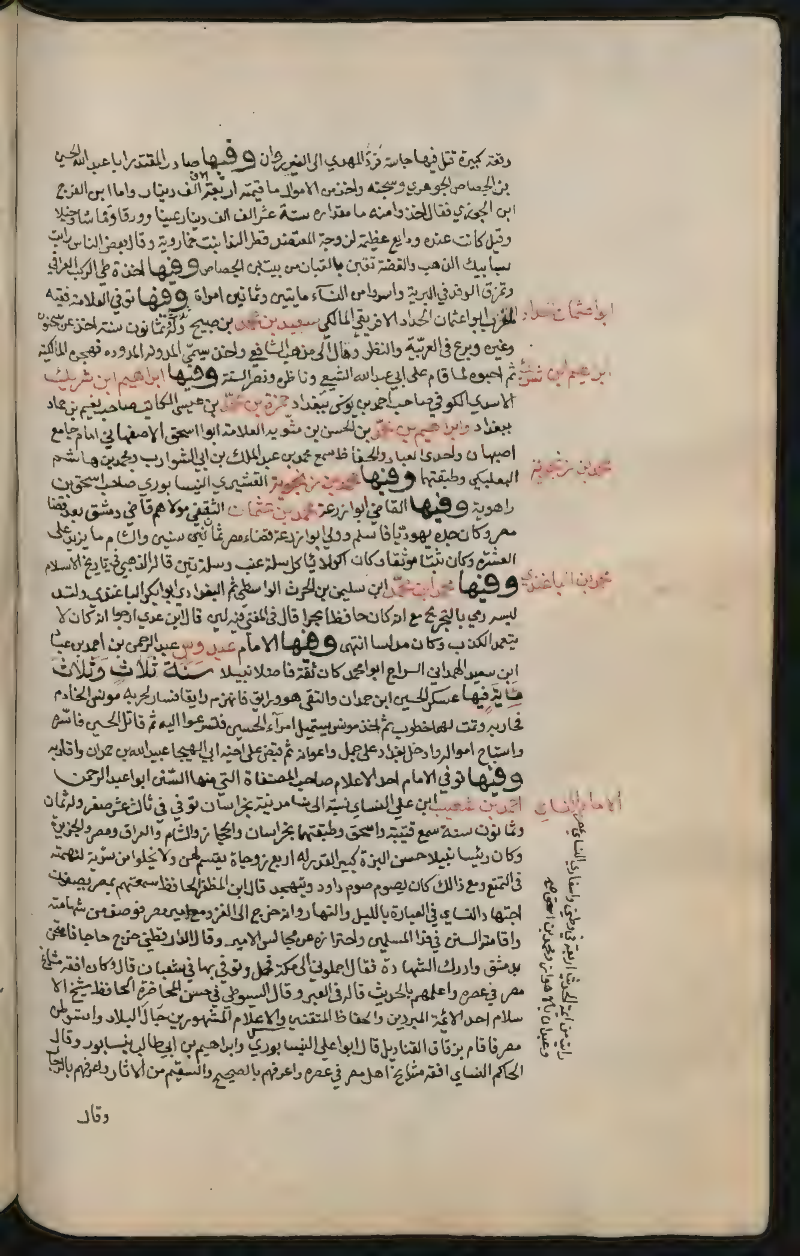 وقعة كبيرة قتل فيها حباسة فردّ المهدي الى القيروان وفيها صادر المقتدر ابا عبد الله الحسين
بن الجصاص الجوهري وسجنه واخذ من الاموال ما قيمته اربعة الف الف دينار واما ابن الفرج
ابن الجوزي فقال اخذوا منه ما مقداره ستة عشر الف الف دينار عينا وورقا وقماشا وخيلا
وقيل كانت عنده ودايع عظيمة لزوجة المعتضد قطر الندا بنت خمارويه وقال بعض الناس رايت
سبايك الذهب والفضة تقبن بالقبان من بيت بن الجصاص وفيها اخذة طي الركب العراقي
وتمزق الوفد في البرية واسروا من النسآء مايتين وثمانين امراة وفيها توفي العلامة فقيه
المغرب ابو اعثمان الحداد الافريقي المالكي سعيد بن محمد بن صبيح وله ثمانون سنة اخذ عن سحنون
وغيره وبرع في العربيّة والنظر ومال الى مذهب الشافعي واخذ يسمّي المدونة المدوده فهجره المالكية
ثم احبوه لما قام على ابي عبد الله الشيعي وناظره ونصر السنة وفيها ابراهيم ابن شريك
الاسدي الكوفي صاحب احمد بن يونس ببغداد حمزة بن محمد بن عيسى الكاتب صاحب نعيم بن حماد
ببغداد وابراهيم بن محمد بن الحسن بن متويه العلامة ابوا اسحق الاصفهاني امام جامع
اصبهان واحد العباد والحفاظ سمع محمد بن عبد الملك بن ابي الشوارب ومحمد بن هاشم
البعلبكي وطبقتهما وفيها محمد بن زنجوية القشيري النيسابوري صاحب اسحق بن
راهوية وفيها القاضي ابوا زرعة محمد بن عثمان الثقفي مولاهم قاضي دمشق بعد قضا
مصر وكان جده يهوديّا فاسلم وولي ابوا زرعة قضاء مصر ثماني سنين وا
العشرة وكان ثبتا موثقا وكان اكولا ياكل سلة عنب وسلة تين قاله الذهبي في تاريخ الاسلام
وفيها محمد ابن محمد ابن سليمن بن الحرث الواسطي ثم البغدادي ابو ابكر الباغندي
ليس رمي بالتجريح مع انه كان حافظا بحرا قال في المغني فيه لين قال ابن عدي ارجوا انه كان لا
يتعمد الكذب وكان مدلسا انتهى وفيها الامام عبدوس عبد الرحمن بن احمد بن عباد
ابن سعيد الهمداني السراج ابو محمد كان ثقة فاضلا نبيلا سنة ثلاث وثلاث
ماية فيها عسكر الحسين ابن حمدان والتقى هوورايق فانهزم رايق فسار لحربه مونس الخادم
فحاربه وتمت لهما خطوب ثم اخذ مونس يستميل امرآء الحسين فتسرعوا اليه ثم قاتل الحسين فاسره
واستباح امواله وادخل بغداد على جمل واعوانه ثم قبض على اخيه ابي الهيجا عبد الله بن حمدان واقاربه
وفيها توفي الامام احد الاعلام صاحب المصنفاة التي منها السنن ابو اعبد الرحمن
احمد بن شعيب ابن علي النساي نسبة الى نسا مدينة بخراسان توفي في ثالث عشر صفر وله ثمان
وثمانون سنة سمع قتيبة واسحق وطبقتهما بخراسان والحجاز والشام والعراق ومصر والجزيرة
وكان رئيسا نبيلا حسن البزة كبير القدر له اربع زوجاة يقسم لهن ولا يخلوا من سرية لنهمته
في التمتع ومع ذالك كان يصوم صوم داود ويتهجد قال ابن المظفر الحافظ سمعتهم بمصر يصفون
اجتهاد النساي في العبادة بالليل والنهار وانه خرج الى الغزو مع امير مصر فوصف من شهامته
واقامته السنن في فدا المسلمين واحترازه عن مجالس الامير وقال الدارقطني خرج حاجا فامتحن
بدمشق وادرك الشهادة فقال احملوني الى مكة فحمل وتوفي بها في شعبان قال وكان افقه مشايخ
مصر في عصره واعلمهم بالحديث قاله في العبر وقال السيوطي في حسن المحاضرة الحافظ شيخ الا
سلام احد الائمة المبرزين والحفاظ المتقنين والاعلام المشهورين جال البلاد واستوطن
مصر فاقام بزقاق القناديل قال ابوا علي النيسابوري وابراهيم بن ابي طالب بنيسابور وقال
الحاكم النساي افقه مشايخ اهل مصر في عصره واعرفهم بالصحيح والسقيم من الاثار واعرفهم بالرجال
وقال
ابو اعثمان الحداد
ابرهيم ابن شريك
محمد ابن زنجوية
محمد ابن الباغندي
الامام النساي
رايت من ايمة الحديث اربعة في وطني واسفاري النساي بمصر
وعبدان بالاهواز ومحمد بن اسحق